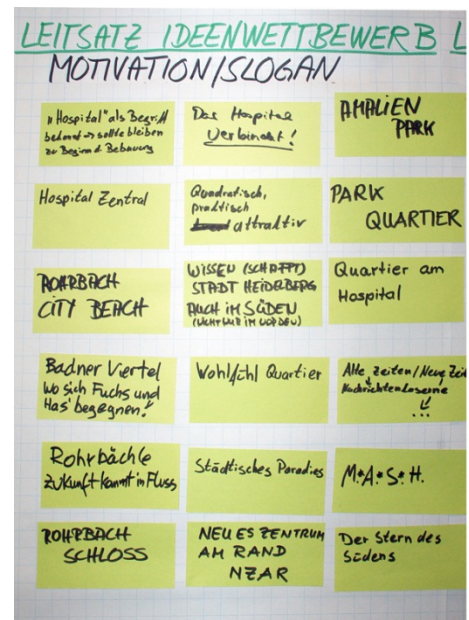 LEITSATZ IDEENWETTBEWERB L
MOTIVATION/SLOGAN
"Hospital" als Begriff
bekannt → sollte bleiben
zu Beginn d. Bebauung
Das Hospital
Verbindet!
AMALIEN
PARK
Hospital Zentral
Quadratisch,
praktisch
attraktiv
PARK
QUARTIER
ROHRBACH
CITY BEACH
WISSEN (SCHAFFT)
STADT HEIDELBERG
AUCH IM SÜDEN
(NICHT NUR IM NORDEN)
Quartier am
Hospital
Badner Viertel
wo sich Fuchs und
Has' begegnen!
Wohlfühl Quartier
Alte Zeiten/Neue Zeit
Nachrichtenkaserne
...
Rohrbächle
Zukunft kommt in Fluss
Städtisches Paradies
M*A*S*H.
ROHRBACH
SCHLOSS
NEUES ZENTRUM
AM RAND
NZAR
Der Stern des
Südens